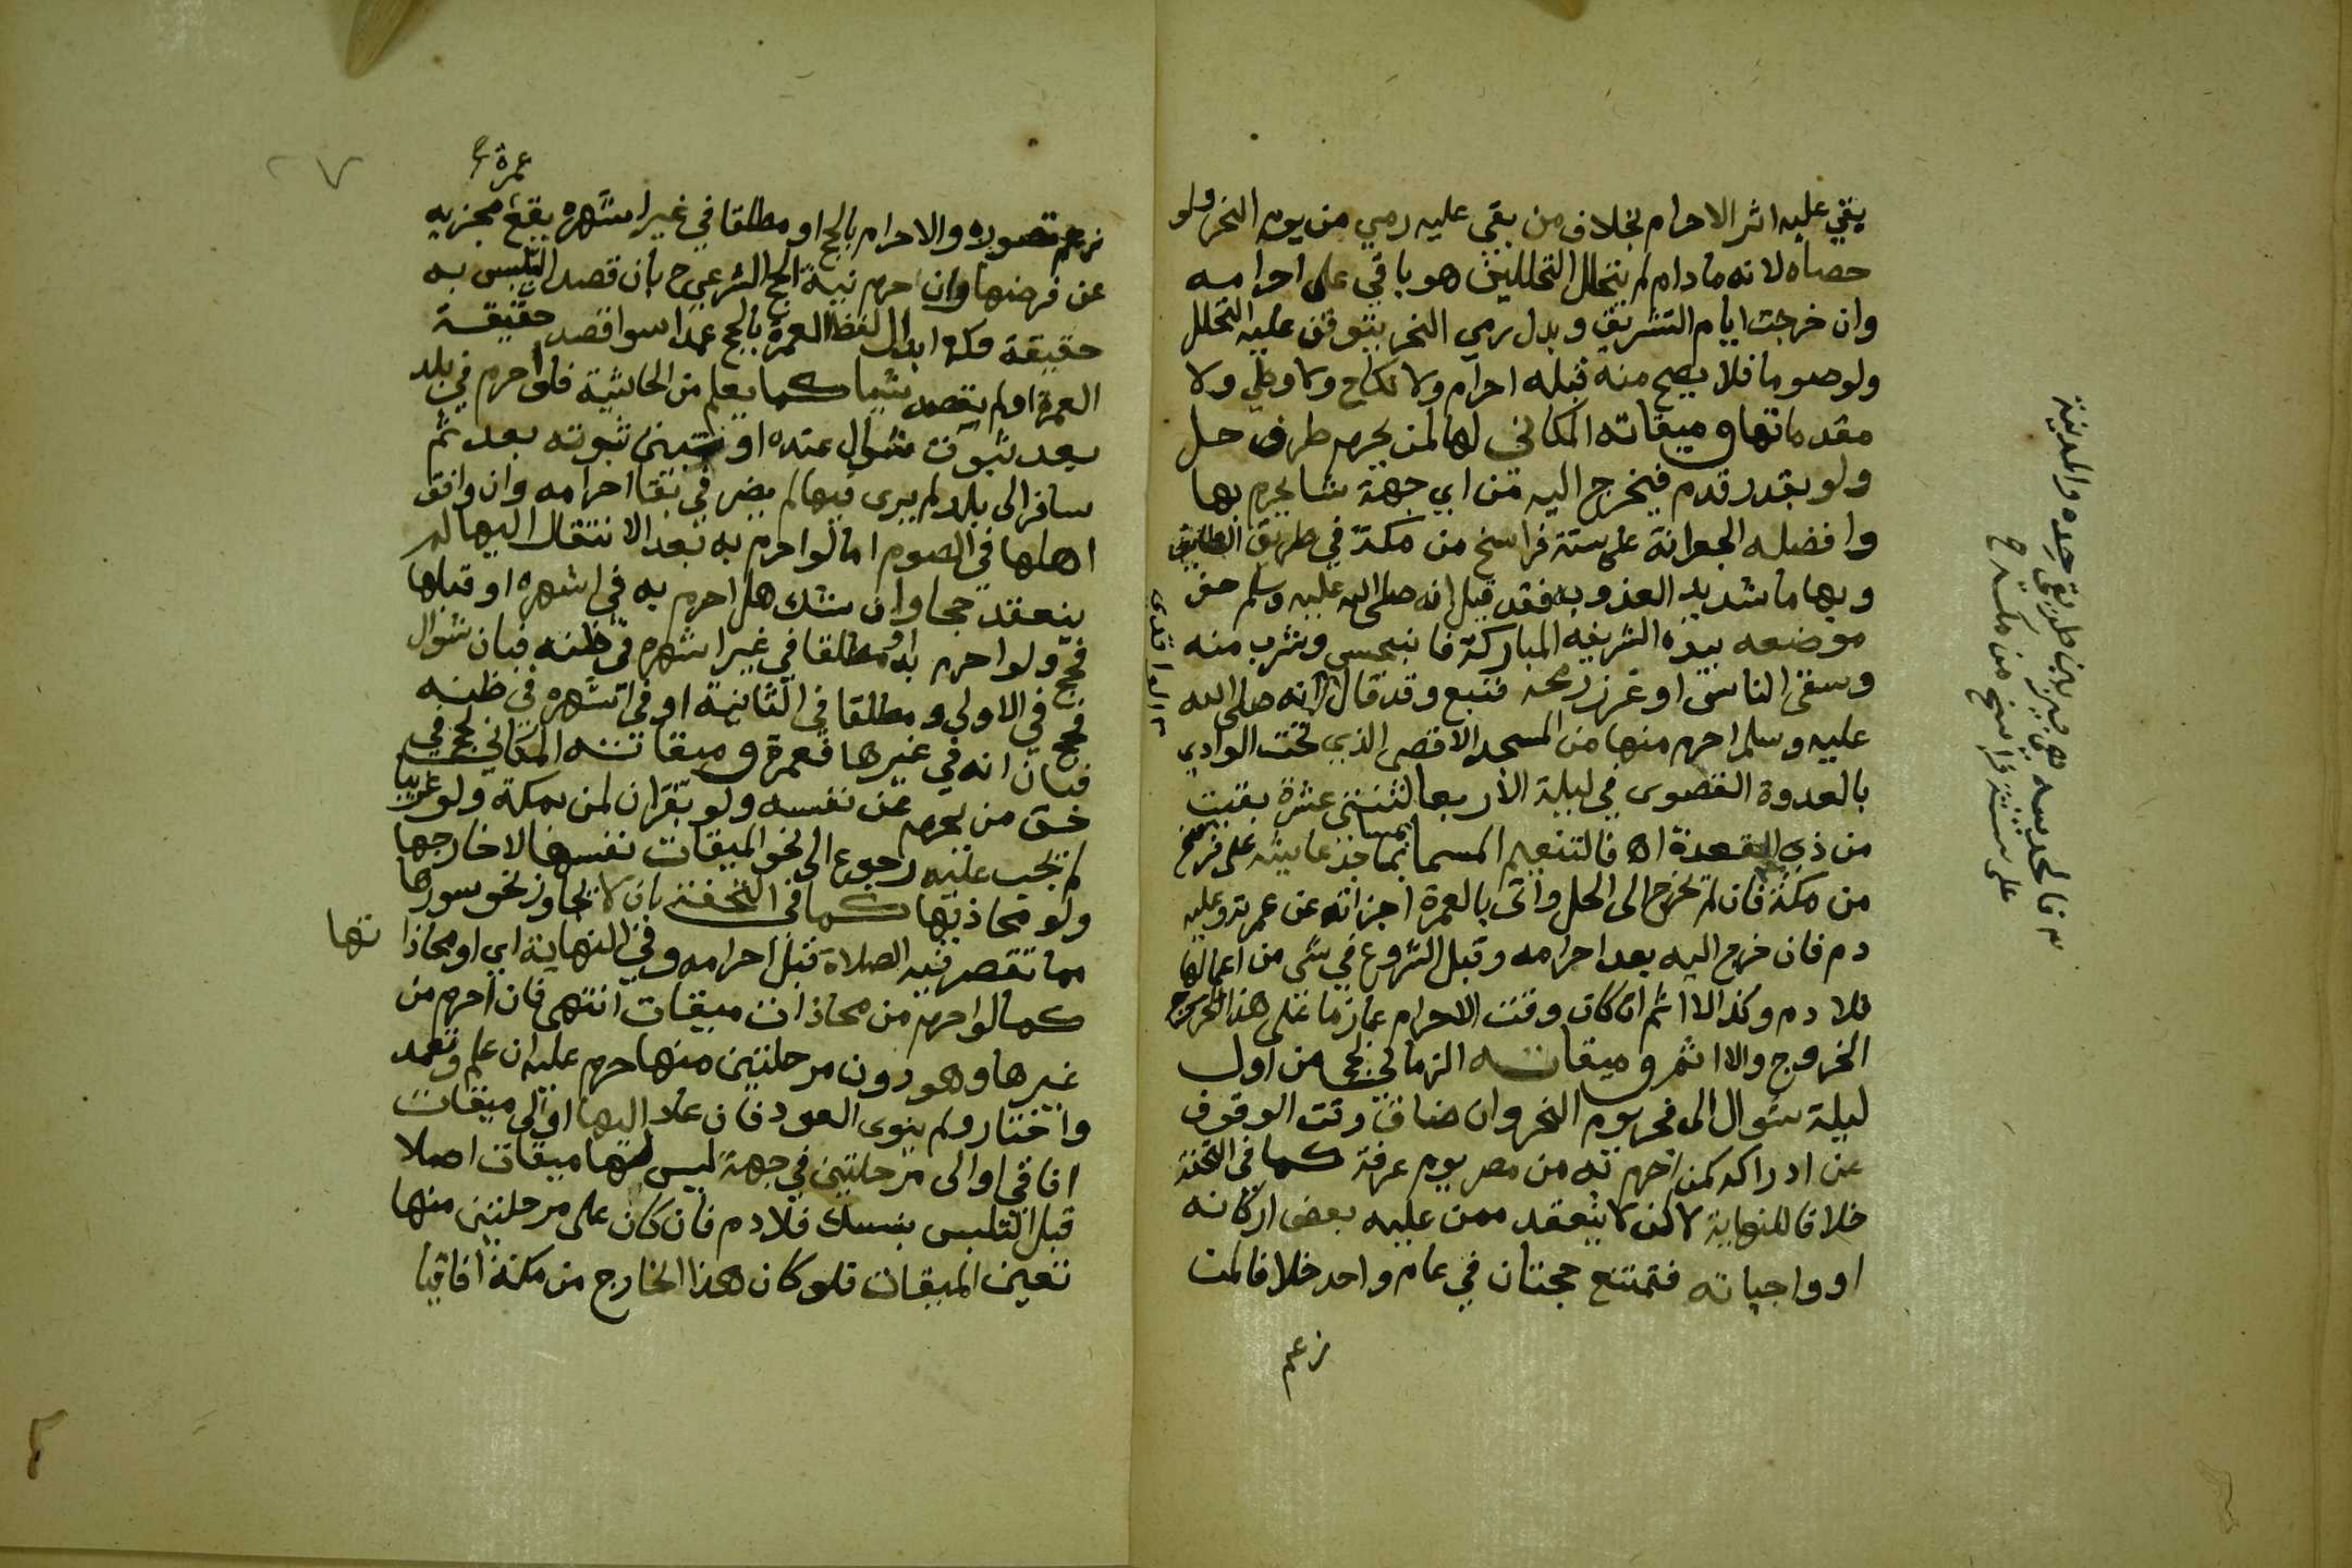 يبقي عليه اثر الاحرام بخلاف من بقي عليه رمي من يوم النحر ولو
حصاه لانه مادام لم يتحلل التحللين هو باقي على احرامه
وان خرجت ايام التشريق وبدل رمي النحر يتوقف عليه التحلل
ولو صوما فلا يصح منه قبله احرام ولا نكاح ولا وطي ولا
مقدماتها وميقاته المكاني لها لمن بحرم طرف حل
ولو بقدر قدم فيخرج اليه من اي جهة شا يحرم بها
وافضله الجعرانة على ستة فراسخ من مكة في طريق الطائف
وبها ما شديد العذوبه فقد قيل انه صلى الله عليه وسلم حفر
موضعه بيده الشريفه المباركة فانبجس وشرب منه
وسقى الناس او غرز رمحه فنبع وقد قال انه صلى الله
عليه وسلم احرم منها من المسجد الاقصى الذي تحت الوادي
بالعدوة القصوى في ليلة الاربعا لثنتي عشرة بقيت
من ذي القعدة اه فالتنعيم المسما بمساجد عايشه على فرسخ
من مكة فان لم يخرج الى الحل واتى بالعمرة اجزاته عن عمرته وعليه
دم فان خرج اليه بعد احرامه وقبل الشروع في شي من اعمالها
فلا دم وكذا لا اثم ان كان وقت الاحرام عازما على هذا الخروج
الخروج والا اثم وميقاته الزماني لحج من اول
ليلة شوال الى فجر يوم النحر وان ضاق وقت الوقوف
عن ادراكه كمن احرم به من مصر يوم عرفة كما في التحفة
خلافا للنهاية لاكن لا ينعقد ممن عليه بعض اركانه
او واجباته فتمتنع حجتان في عام واحد خلافا لمن
زعم
فالحديبيه هي بير بين طريق جده والمدينة
على ستة فراسخ من مكة ح
عمرة
زعم تصوره والاحرام بالحج او مطلقا في غير اشهره يقع مجزيه
عن فرضها وان احرم نية الحج الشرعي ح بان قصد التلبس به
حقيقة وكذا ابدال لفظ العمرة بالحج عمدا سوا قصد حقيقة
العمرة او لم يقصد شيا كما يعلم من الحاشية فلو احرم في بلد
بعد ثبوت شوال عنده او تبين ثبوته بعد ثم
سافر الى بلد لم يرى فيها لم يضر في بقا احرامه وان وافق
اهلها في الصوم اما لو احرم به بعد الانتقال اليها لم
ينعقد حجا وان شك هل احرم به في اشهره او قبلها
فحج ولو احرم به او مطلقا في غير اشهره في ظنه فبان شوال
فحج في الاولى ومطلقا في الثانية او في اشهره في ظنه
فبان انه في غيرها فعمرة وميقاته المكاني لحج في
حق من يحرم عن نفسه ولو بقران لمن بمكة ولو غريبا
لم يجب عليه رجوع الى نحو الميقات نفسها لا خارجها
ولو محاذيها كما في التحفة بان لا يجاوز نحو سورها
مما تقصر فيه الصلاة قبل احرامه وفي النهاية اي او محاذا تها
كما لو احرم من محاذات ميقات انتهى فان احرم من
غيرها وهو دون مرحلتين منها حرم عليه ان علم وتعمد
واختار ولم ينوى العود فان عاد اليها او الى ميقات
افاقي او الى مرحلتين في جهة ليس لها ميقات اصلا
قبل التلبس بنسك فلا دم فان كان على مرحلتين منها
تعين الميقات فلو كان هذا الخارج من مكة افاقيا